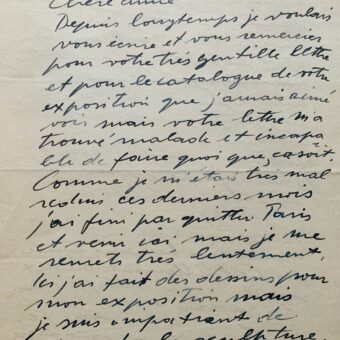 Chère amie
Depuis longtemps je voulais
vous écrire et vous remercier
pour votre très gentille lettre
et pour le catalogue de votre
exposition que j'amais aimé
voir mais votre lettre m'a
trouvé malade et incapa
ble de faire quoi que ca soit.
Comme je m'étais très mal
ces derniers mois
j'ai fini par quitter Paris
et venir ici mais je me
remets très lentement.
Ici j'ai fait des dessins pour
mon exposition mais
je suis impatient de
sculpture